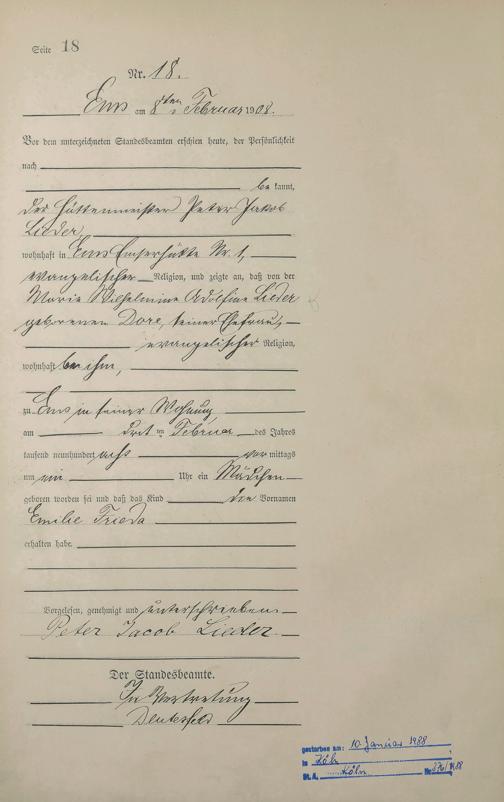 Seite 18
Nr. 18.
Ems am 8ten Februar 1908.
Vor dem unterzeichneten Standesbeamten erschien heute, der Persönlichkeit
nach
be kannt,
der Hüttenmeister Peter Jakob
Lieder,
wohnhaft in Ems Emserhütte Nr. 1,
evangelischer Religion, und zeigte an, daß von der
Maria Wilhelmine Adolfine Lieder
geborenen Dore, seiner Ehefrau,
evangelischer Religion,
wohnhaft bei ihm,
zu Ems in seiner Wohnung
am dritten Februar des Jahres
tausend neunhundert acht vor mittags
um ein Uhr ein Mädchen
geboren worden sei und daß das Kind die Vornamen
Emilie Frieda
erhalten habe.
Vorgelesen, genehmigt und unterschrieben
Peter Jacob Lieder
Der Standesbeamte.
In Vertretung
gestorben am: 10. Januar 1988
in Köln
St. A. Köln Nr. 376/1988